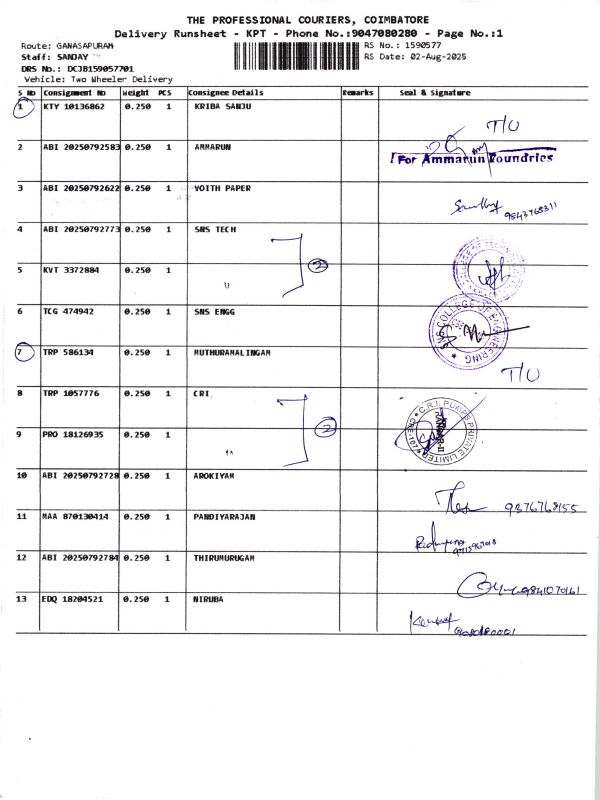 THE PROFESSIONAL COURIERS, COIMBATORE
Delivery Runsheet - KPT - Phone No.:9047080280 - Page No.:1
Route: GANASAPURAM
RS No.: 1590577
Staff: SANJAY
RS Date: 02-Aug-2025
DRS No.: DCJB159057701
Vehicle: Two Wheeler Delivery
S No Consignment No Weight PCS Consignee Details Remarks Seal & Signature
1 KTY 10136862 0.250 1 KRIBA SANJU T/U
2 ABI 20250792583 0.250 1 AMMARUN
For Ammarun Foundries
3 ABI 20250792622 0.250 1 VOITH PAPER
9543768311
4 ABI 20250792773 0.250 1 SNS TECH
2
5 KVT 3372884 0.250 1 "
6 TCG 474942 0.250 1 SNS ENGG
SNS COLLEGE OF ENGINEERING
7 TRP 586134 0.250 1 MUTHURAMALINGAM T/U
8 TRP 1057776 0.250 1 CRI
C.R.I. PUMPS PRIVATE LIMITED
2
9 PRO 18126935 0.250 1 "
10 ABI 20250792728 0.250 1 AROKIYAM
9376768155
11 MAA 870130414 0.250 1 PANDIYARAJAN
12 ABI 20250792784 0.250 1 THIRUMURUGAM
9841070161
13 EDQ 18204521 0.250 1 NIRUBA